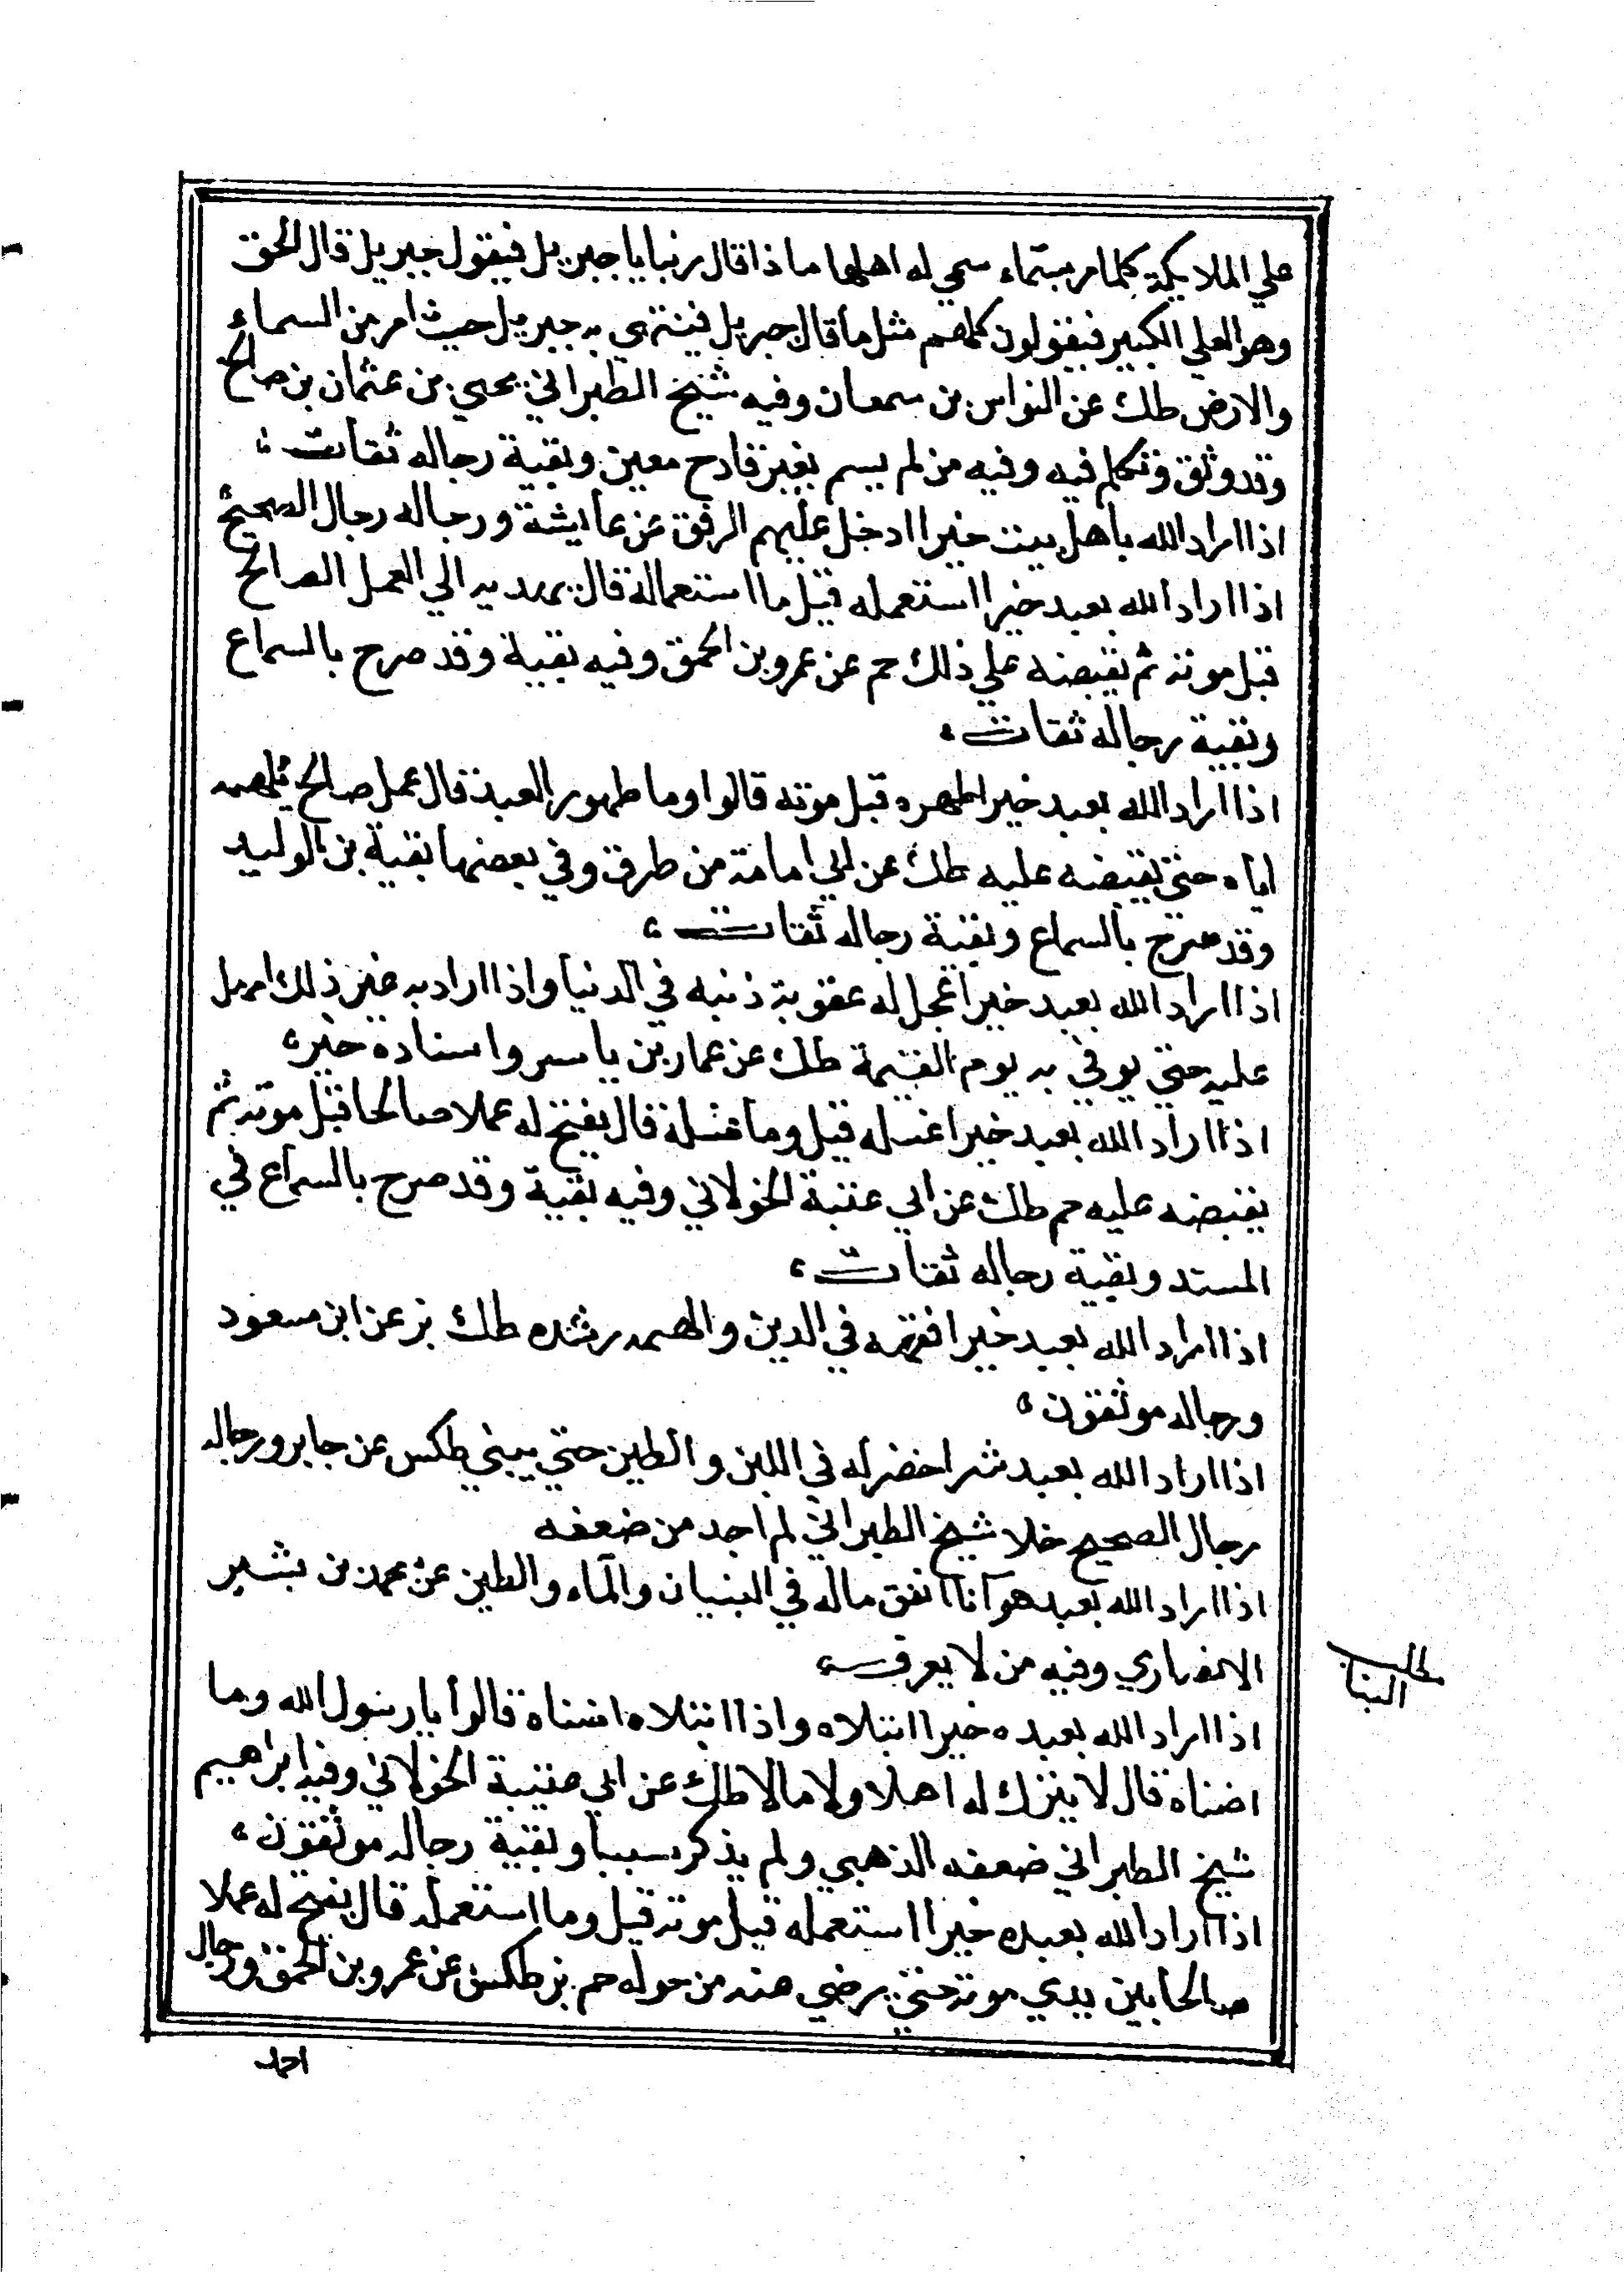 علي الملايكة كلما مر بسماء سمي له اهلها ماذا قال ربنا يا جبريل فيقول جبريل قال الحق
وهو العلي الكبير فيقولون كلهم مثل ما قال جبريل فينتهي به جبريل حيث امر من السماء
والارض طك عن النواس بن سمعان وفيه شيخ الطبراني يحيي بن عثمان بن صالح
وقد وثق وتكلم فيه وفيه من لم يسم بغير قادح معين وبقية رجاله ثقات
اذا اراد الله باهل بيت خيرا ادخل عليهم الرفق عن عايشة ورجاله رجال الصحيح
اذا اراد الله بعبد خيرا استعمله قيل ما استعماله قال يهديه الي العمل الصالح
قبل موته ثم يقبضه علي ذلك حم عن عمرو بن الحمق وفيه بقية وقد صرح بالسماع
وبقية رجاله ثقات
اذا اراد الله بعبد خيرا طهره قبل موته قالوا وما طهور العبد قال عمل صالح يلهمه
اياه حتي يقبضه عليه طك عن ابي امامة من طرق وفي بعضها بقية بن الوليد
وقد صرح بالسماع وبقية رجاله ثقات
اذا اراد الله بعبد خيرا عجل له عقوبة ذنبه في الدنيا واذا اراد به غير ذلك امهل
عليه حتي يوفي به يوم القيمة طك عن عمار بن ياسر واسناده خير
اذا اراد الله بعبد خيرا غسله قيل وما غسله قال يفتح له عملا صالحا قبل موته ثم
يقبضه عليه حم طك عن ابي عنبة الخولاني وفيه بقية وقد صرح بالسماع في
المسند وبقية رجاله ثقات
اذا اراد الله بعبد خيرا فقهه في الدين والهمه رشده طك بز عن ابن مسعود
ورجاله موثقون
اذا اراد الله بعبد شرا خضر له في اللبن والطين حتي يبني طكس عن جابر ورجاله
رجال الصحيح خلا شيخ الطبراني لم اجد من ضعفه
اذا اراد الله بعبد هوانا انفق ماله في البنيان والماء والطين عن محمد بن بشير
الانصاري وفيه من لا يعرف
اذا اراد الله بعبده خيرا ابتلاه واذا ابتلاه اضناه قالوا يا رسول الله وما
اضناه قال لا يترك له اهلا ولا مالا طك عن ابي عتيبة الخولاني وفيه ابراهيم
شيخ الطبراني ضعفه الذهبي ولم يذكر سببا وبقية رجاله موثقون
اذا اراد الله بعبده خيرا استعمله قبل موته قيل وما استعمله قال يفتح له عملا
صالحا بين يدي موته حتي يرضي عنه من حوله حم بز طكس عن عمرو بن الحمق ورجال
احمد